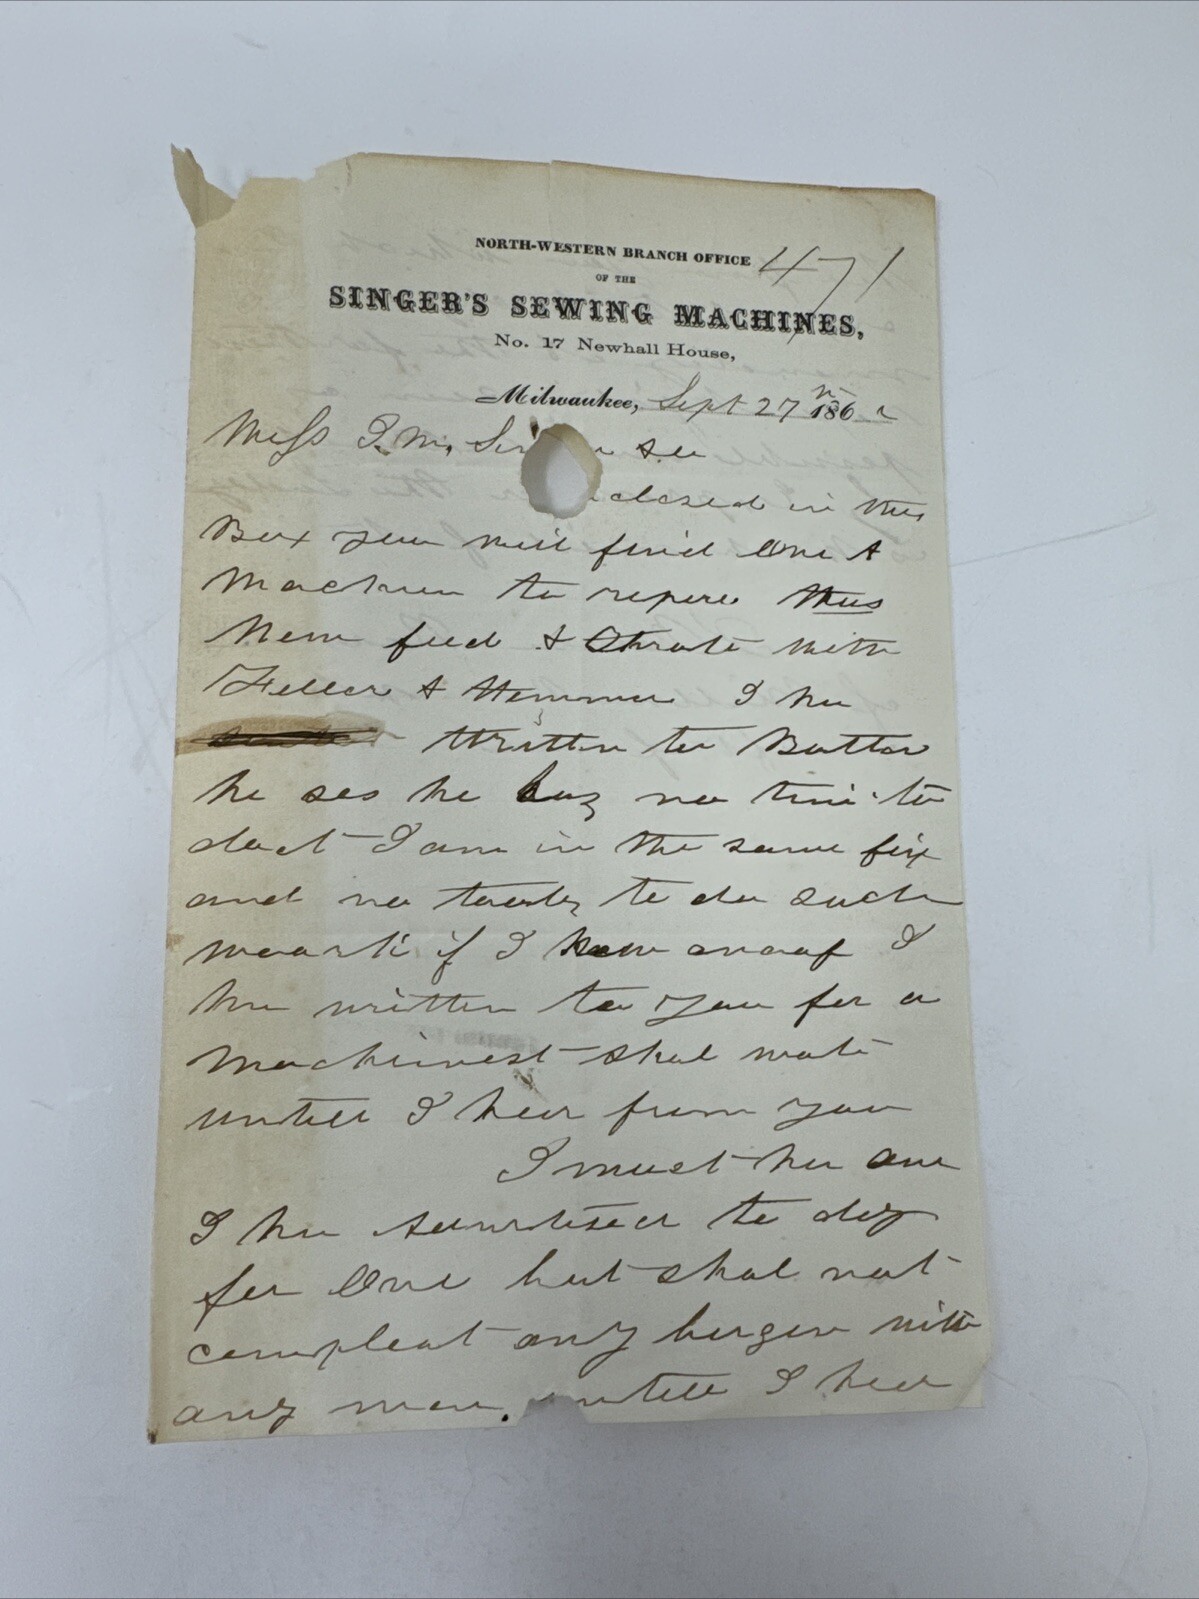 NORTH-WESTERN BRANCH OFFICE 471
OF THE
SINGER'S SEWING MACHINES,
No. 17 Newhall House,
Milwaukee, Sept 27 186
Mess I. M. &
in this
Box you will find One A
Machien to repere thus
New feed & with
Feller & Hemmer I hu
Written to Button
he ses he haz no time to
doct I am in the same fix
and no to do such
woork if I know anoof I
hu written to you for a
Machinest shal wate
untill I hear from you
I must hu one
I hu Advertised to day
for One but shal not
compleat any with
any man untill I hear